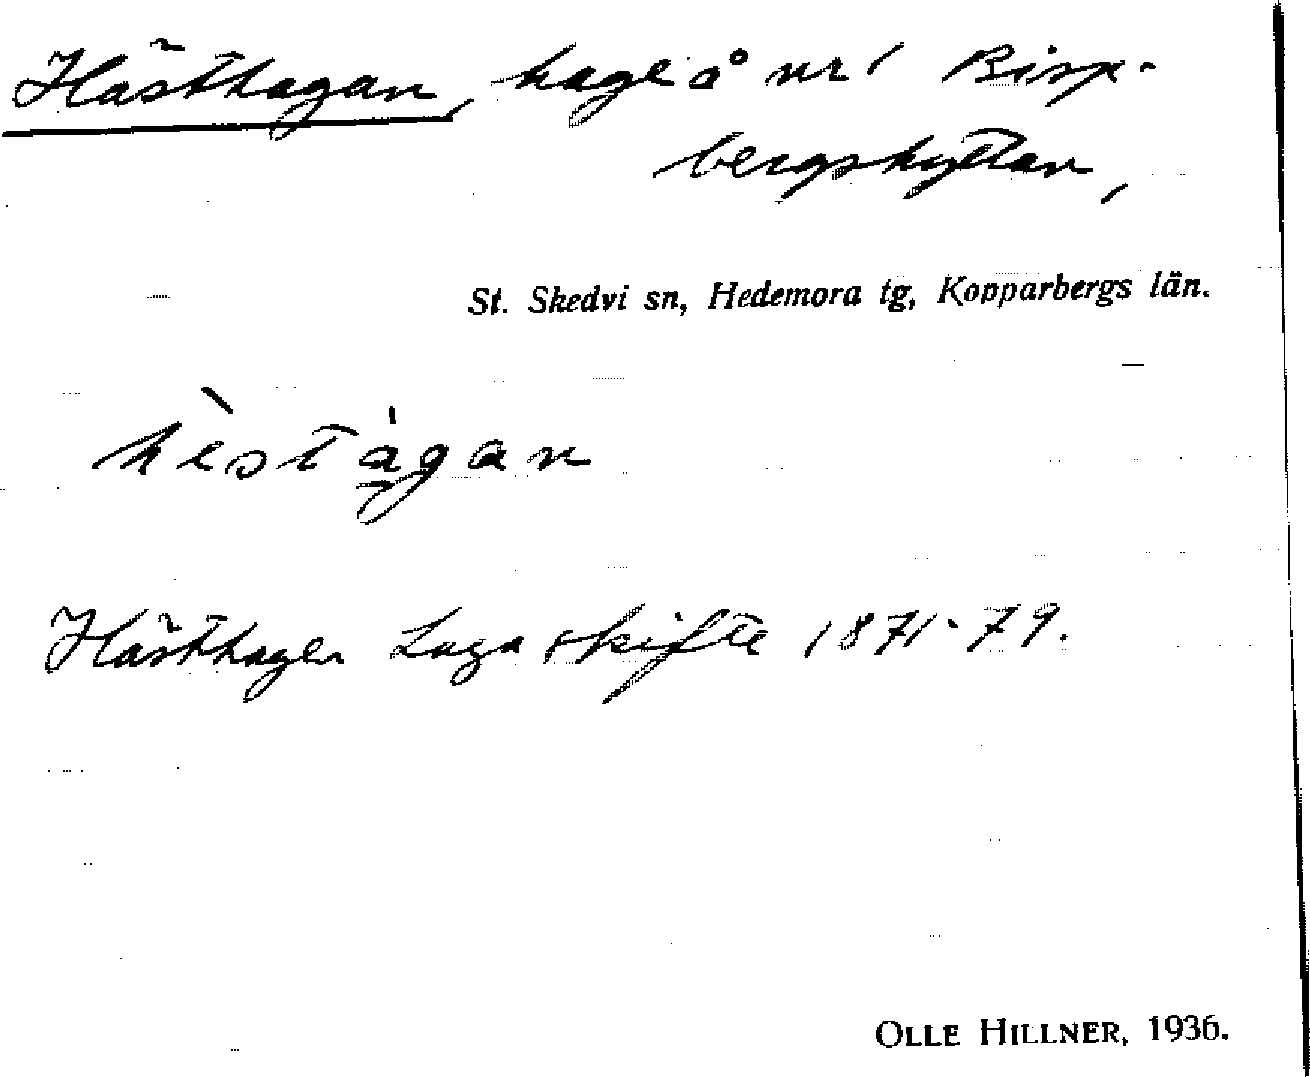 Hästhagan, hage å nr 1 Bisp-
bergshyttan,
St. Skedvi sn, Hedemora tg, Kopparbergs län.
hèstágan
Hästhagen Laga skifte 1871-79.
OLLE HILLNER, 1936.